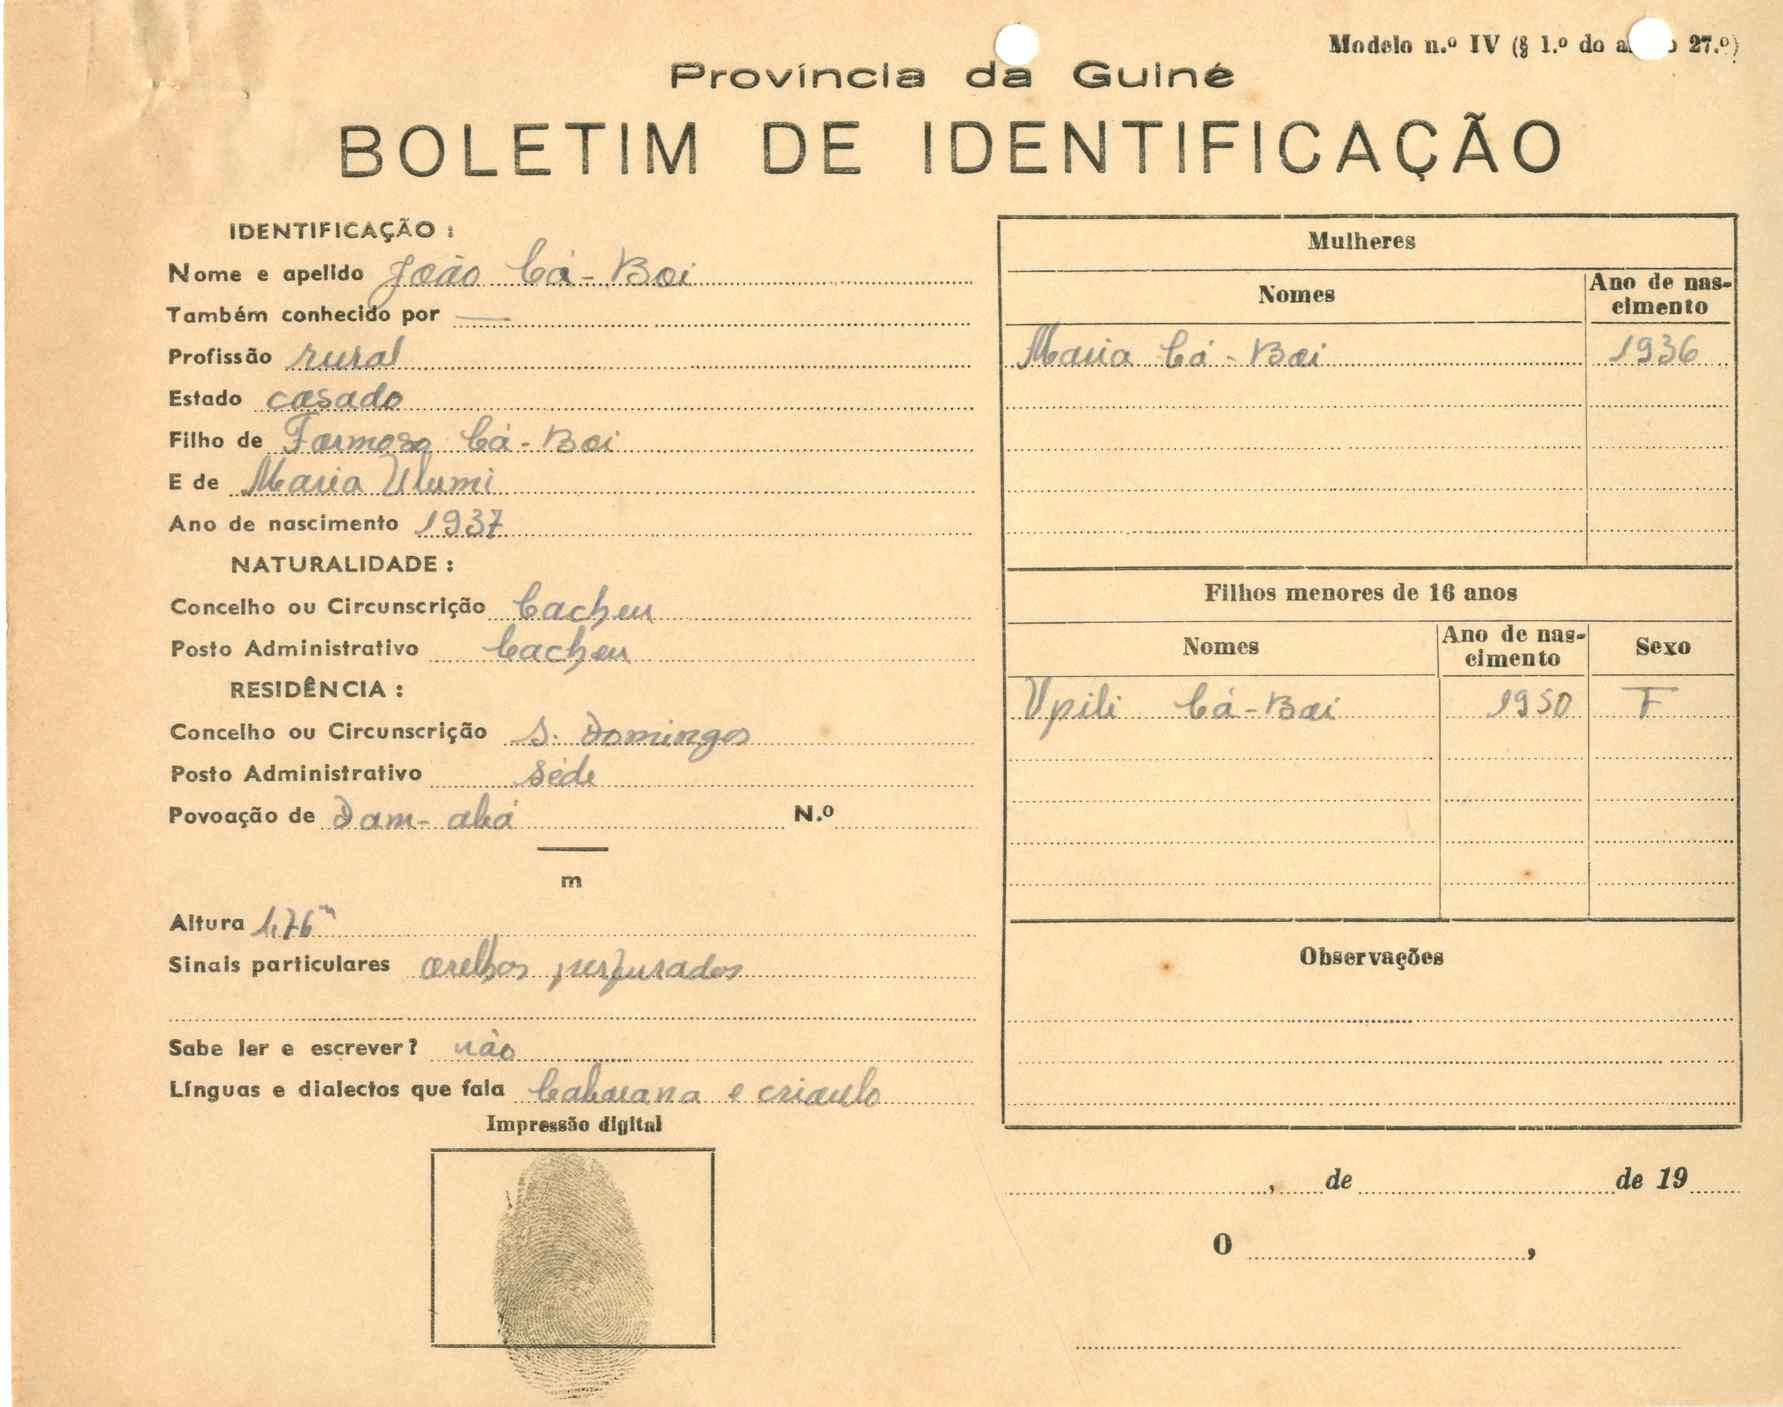 Modelo n.º IV (§ 1.º do a 27.º)
Província da Guiné
BOLETIM DE IDENTIFICAÇÃO
IDENTIFICAÇÃO :
Nome e apelido João Cá-Boi
Também conhecido por —
Profissão rural
Estado casado
Filho de Formoso Cá-Boi
E de Maria Ulumi
Ano de nascimento 1937
NATURALIDADE :
Concelho ou Circunscrição Cacheu
Posto Administrativo Cacheu
RESIDÊNCIA :
Concelho ou Circunscrição S. Domingos
Posto Administrativo Séde
Povoação de N.º
m
Altura 1,76m
Sinais particulares orelhas perfurados
Sabe ler e escrever? não
Línguas e dialectos que fala e crioulo
Impressão digital
Mulheres
Nomes Ano de nas-
cimento
Maria Cá-Boi 1936
Filhos menores de 16 anos
Nomes Ano de nas-
cimento Sexo
Upili Cá-Boi 1950 F
Observações
, de de 19
O ,